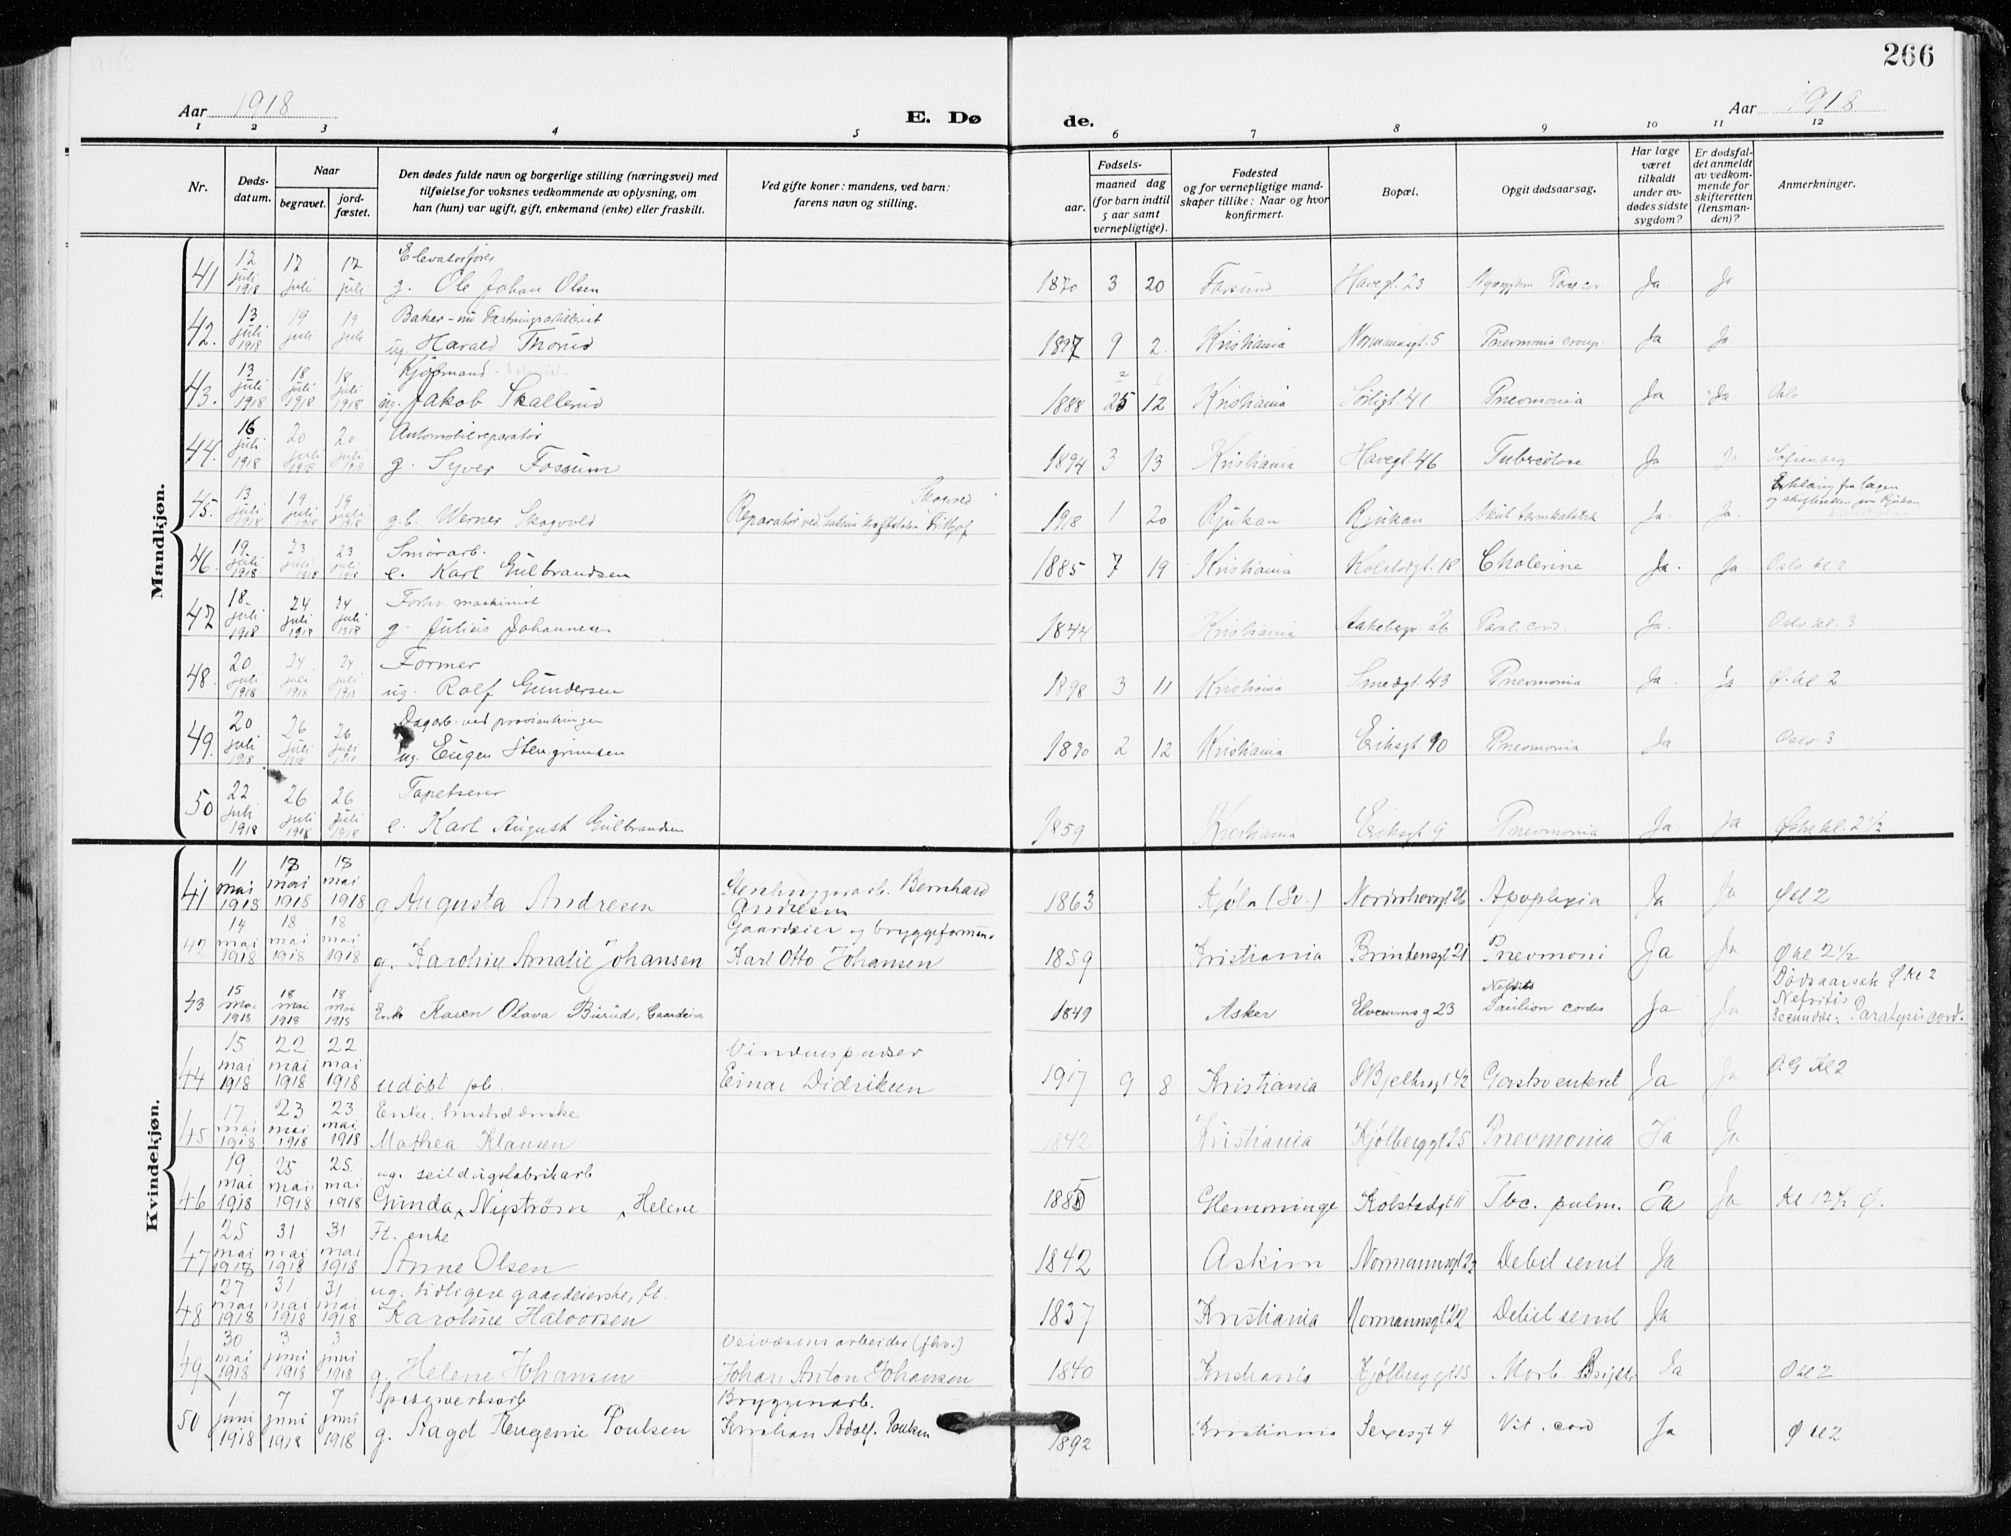 266
Aar 1918
E. Dø
de.
Aar 1918
1 2 3 4 5 6 7 8 9 10 11 12
Nr.
Døds-
datum.
Naar
begravet.
jord-
fæstet.
Den dødes fulde navn og borgerlige stilling (næringsvei) med
tilføielse for voksnes vedkommende av oplysning, om
han (hun) var ugift, gift, enkemand (enke) eller fraskilt.
Ved gifte koner: mandens, ved barn:
farens navn og stilling.
Fødsels-
aar.
maaned dag
(for barn indtil
5 aar samt
vernepligtige).
Fødested
og for vernepligtige mand-
skaper tillike: Naar og hvor
konfirmert.
Bopæl.
Opgit dødsaarsag.
Har læge
været
tilkaldt
under av-
dødes sidste
sygdom?
Er dødsfal-
det anmeldt
av vedkom-
mende for
skifteretten
(lensman-
den)?
Anmerkninger.
Mandkjøn.
41 12 juli 1918 17 juli 17 juli Elevatorfører
g. Ole Johan Olsen 1870 3 20 Farsund Havegt. 23 Ja Ja
42. 13 juli 1918 19 juli 19 juli Baker - nu Fæstningsartillerist
ug Harald Thorud 1897 9 2 Kristiania Normannsgt. 5 Pneumonia croup. Ja Ja
43. 13 juli 1918 18 juli 1918 18 juli 1918 Kjøbmand
ug. Jakob Skallerud 1888 25 12 Kristiania Sørligt 41 Pneumonia Ja Ja Oslo
44. 16 juli 1918 20 juli 1918 20 juli 1918 Automobilreparatør
g. Syver Fossum 1894 3 13 Kristiania Havegt. 46 Tuberculose Ja Ja Sofienberg
45. 13 juli 1918 19 juli 1918 19 juli 1918 g.b. Werner Skogvold Reparatør ved 1918 1 20 Rjukan Rjukan Akut tarmkatarrh Ja. Ja. Erklæring fra lægen
og skifteretten paa Rjukan
46. 19 juli 1918 23 juli 1918 23 juli 1918 Smørarb.
e. Karl Gulbrandsen 1885 7 19 Kristiania Kolstadgt. 18 Cholerine Ja. Ja Oslo kl 2
47 18 juli 1918 24 juli 1918 24 juli 1918 Forhv. maskinist
g. Julius Johannesen 1844 Kristiania Aakebergv 26 Paral. cord. Ja. Oslo kl. 3
48. 20 juli 1918 24 juli 1918 24 juli 1918 Former
ug. Rolf Gundersen 1898 3 11 Kristiania Smedgt. 43 Pneumonia Ja. Ja Ø. kl 2
49. 20 juli 1918 26 juli 1918 26 juli 1918 Dagarb. ved provianteringen
ug. Eugen Stengrimsen 1890 2 12 Kristiania Eriksgt. 10 Pneumonia Ja Oslo 3
50 22 juli 1918 26 juli 1918 26 juli 1918 Tapetserer
e. Karl August Gulbrandsen 1859 Kristiania Eriksgt 9 Pneumonia Ja. Ja Østre kl. 2 1/2
Kvindekjøn.
41 11 mai 1918 18 mai 1918 18 mai 1918 g Augusta Andresen Stenhuggerarb. Bernhard
Andresen 1863 Kjøla (Sv.) Nordahovsgt 26 Apoplexia Ja Ja Ø kl 2
42 14 mai 1918 18 mai 1918 18 mai 1918 g. Karoline Amalie Johansen Gaardeier og bryggeformand
Karl Otto Johansen 1859 Kristiania Brinkensgt 21 Pneumoni Ja Ja Ø kl 2 1/2
43 15 mai 1918 18 mai 1918 18 mai 1918 Enke Karen Olava Burud, Gaardeier 1849 Asker Elvenmsg 23 Nefritis Ja Ja Dødsaarsak Ø kl 2
Nefritis
Secundær: Paralysis cord.
44 15 mai 1918 22 mai 1918 22 mai 1918 udøbt pb. Vinduspudser
Einar Didriksen 1917 9 8 Kristiania St Bjelkesgt 42 Gastroenterit Ja Ja Ø.G Kl 2
45 17 mai 1918 23 mai 1918 23 mai 1918 Enke,
Mathea Klausen 1842 Kristiania Kjølberggt 25 Pneumonia Ja Ja
46 19 mai 1918 25 mai 1918 25 mai 1918 ug. seildugsfabrikarb
Gunda Nystrøm Helene 1885 Glemminge Kolstadgt 11 Tbc. pulm. Ja Ja Kl 12 1/2 Ø.
47 25 mai 1918 31 mai 1918 31 mai 1918 Ft. enke
Anne Olsen 1842 Askim Normannsgt 22 Debil senil Ja
48 27 mai 1918 31 mai 1918 31 mai 1918 ug. tidligere gaardeierske, ft.
Karoline Halvorsen 1837 Kristiania Normannsgt 22 Debil senil Ja
49 30 mai 1918 3 juni 1918 3 juni 1918 g. Helene Johansen Veivæsensarbeider (fhv.)
Johan Anton Johansen 1840 Kristiania Kjølberggt 15 Morb. Brightii Ja Ø kl 2
50 1 juni 1918 7 juni 1918 7 juni 1918 Spigerverksarb
g. Aagot Eugenie Poulsen Bryggeriarb.
Kristian Adolf Poulsen 1892 Kristiania Sexesgt 4 Vit. cord Ja Ø kl 2